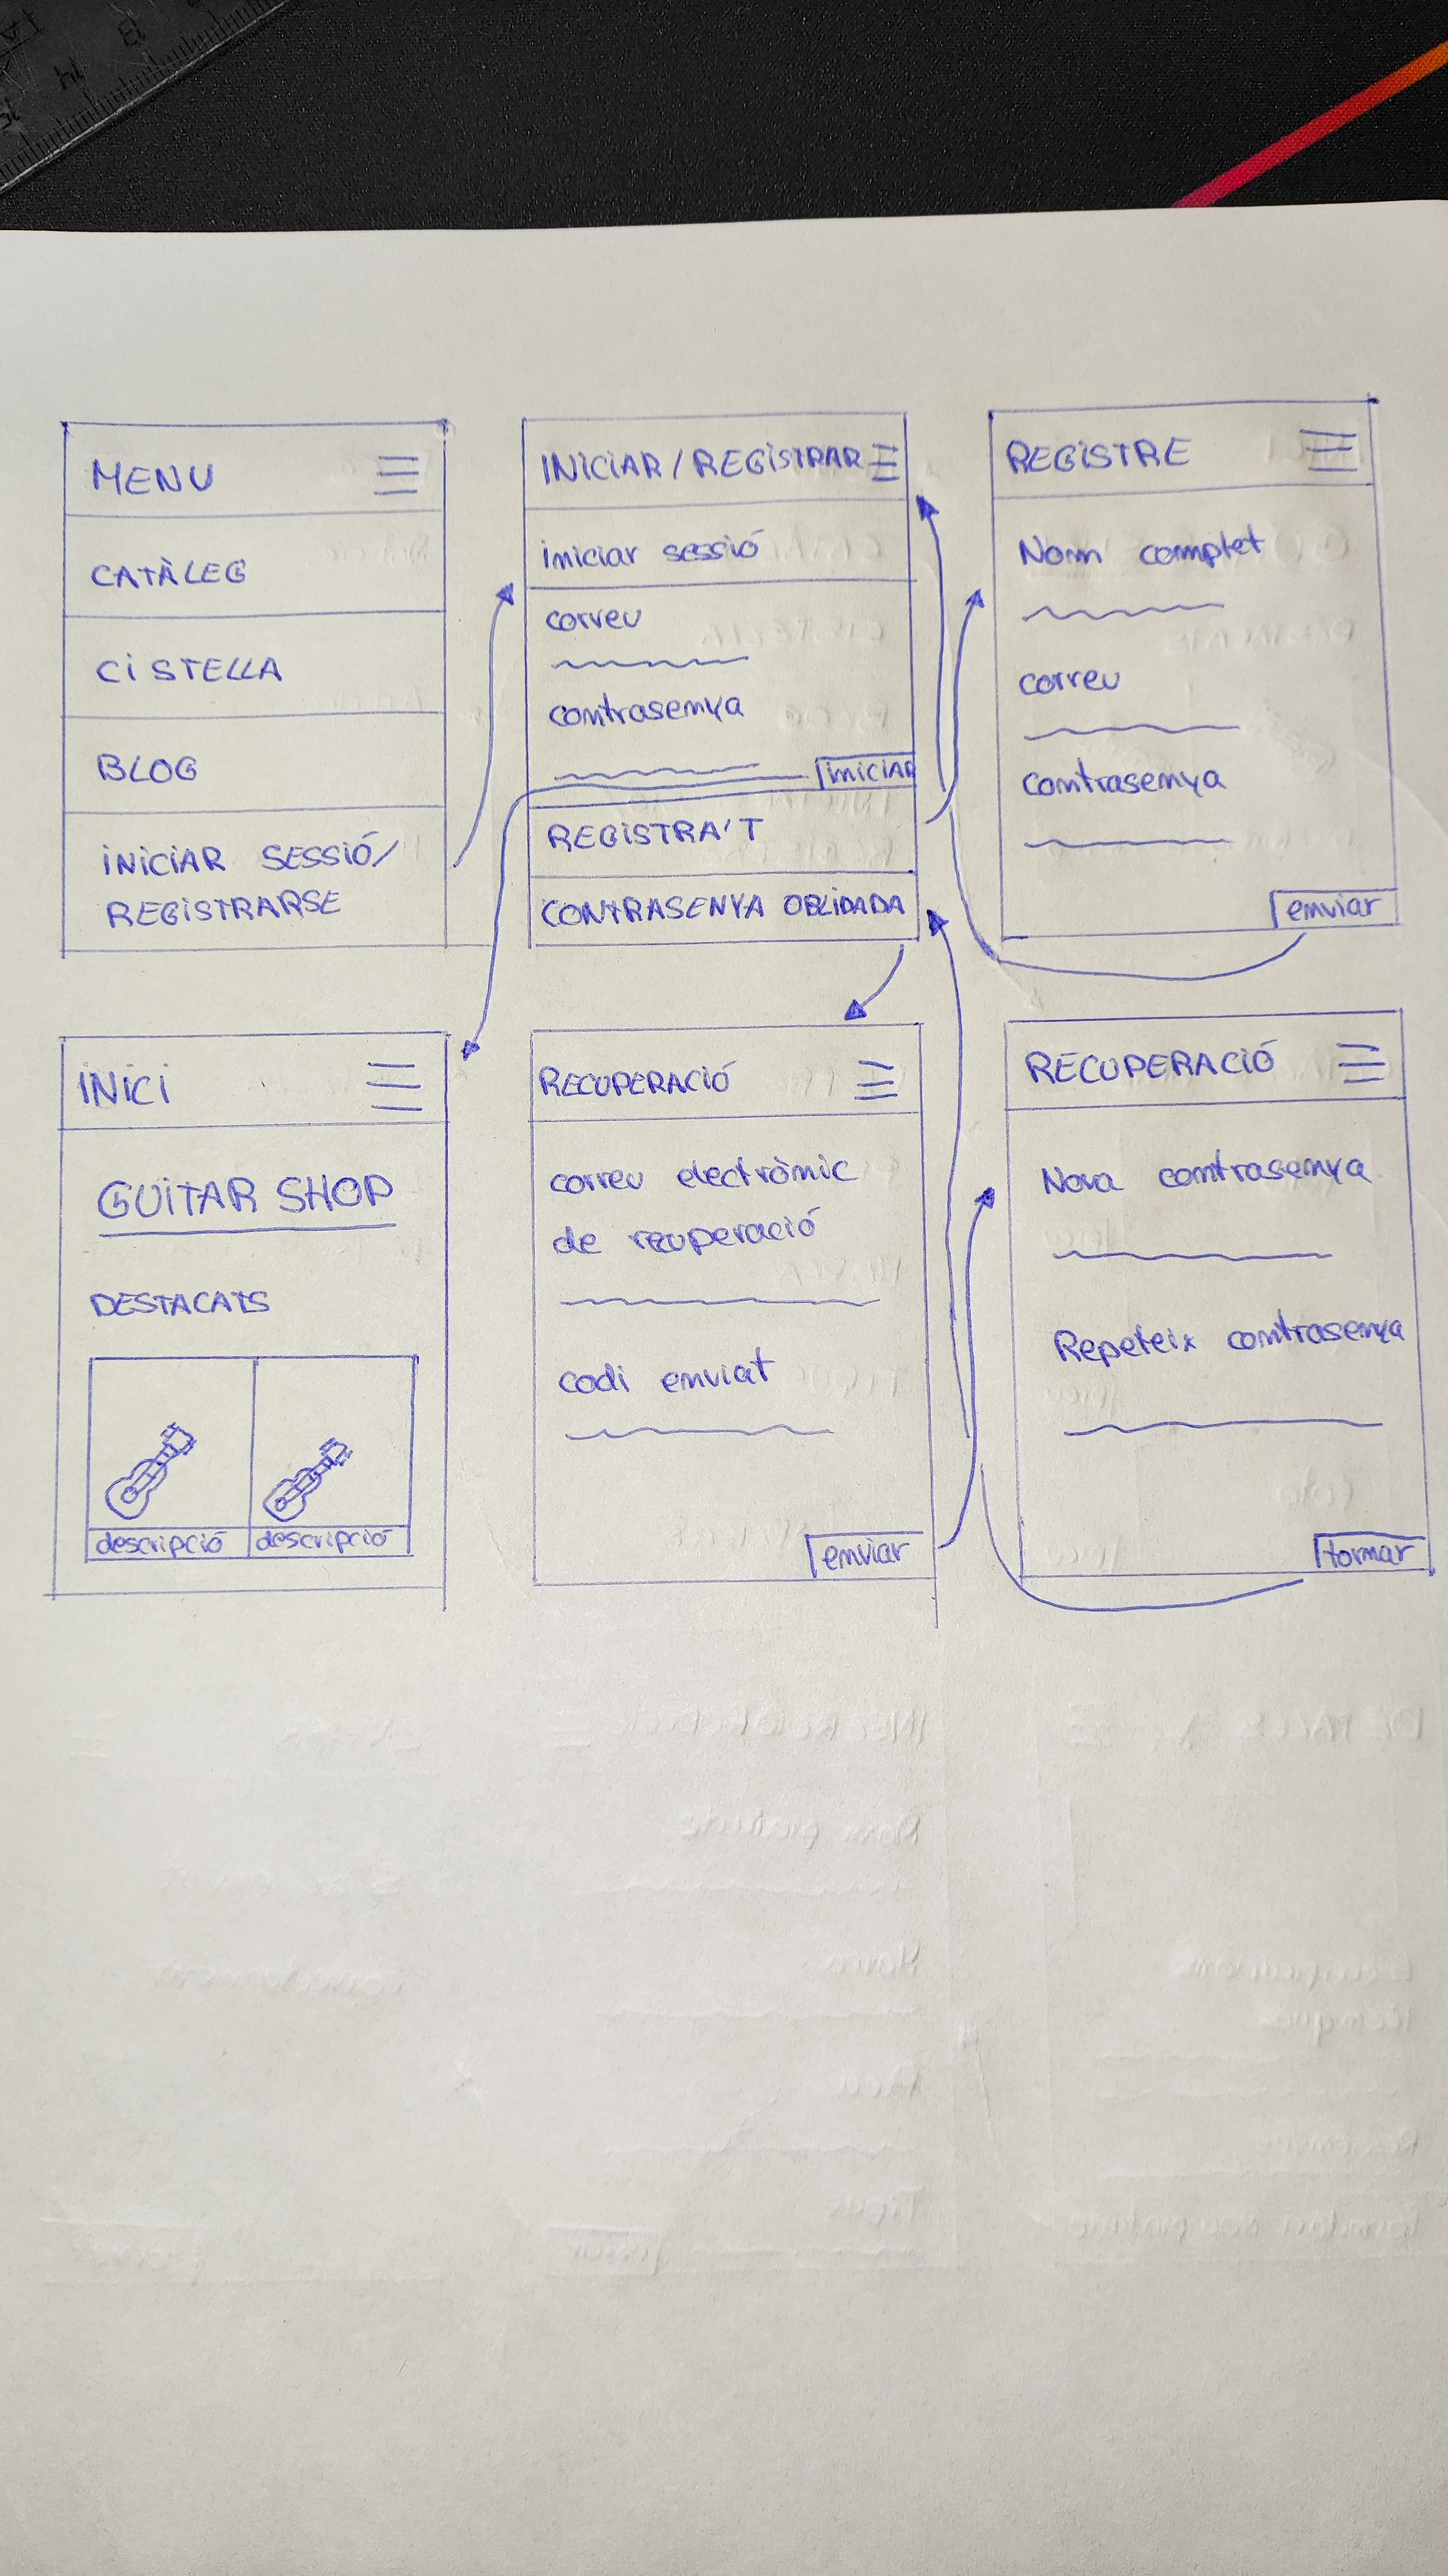 MENU
CATÀLEG
CISTELLA
BLOG
INICIAR SESSIÓ/
REGISTRARSE
INICIAR/REGISTRAR
iniciar sessió
correu
contrasenya
INICIAR
REGISTRA'T
CONTRASENYA OBLIDADA
REGISTRE
Nom complet
correu
contrasenya
enviar
INICI
GUITAR SHOP
DESTACATS
descripció descripció
RECUPERACIÓ
correu electrònic
de recuperació
codi enviat
enviar
RECUPERACIÓ
Nova contrasenya
Repeteix contrasenya
tornar